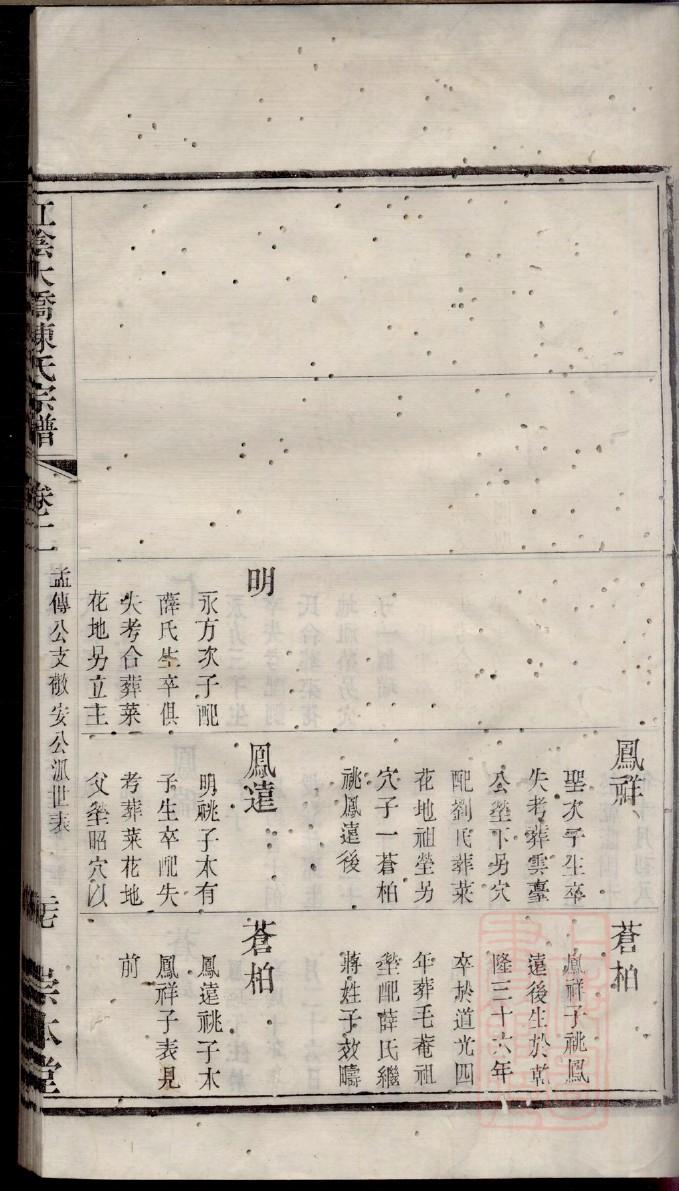 鳳祥
聖次子生卒
失考葬雲臺
公塋下另穴
配劉氏葬菜
花地祖塋另
穴子一蒼柏
祧鳳遠後
蒼柏
鳳祥子祧鳳
遠後生於乾
隆三十六年
卒於道光四
年葬毛菴祖
塋配薛氏繼
蔣姓子效疇
明
永方次子配
薛氏生卒俱
失考合葬菜
花地另立主
鳳遠
明祧子本有
子生卒配失
考葬菜花地
父塋昭穴以
蒼柏
鳳遠祧子本
鳳祥子表見
前
江陰大橋陳氏宗譜
卷二
孟傳公支敬安公派世表
崇本堂